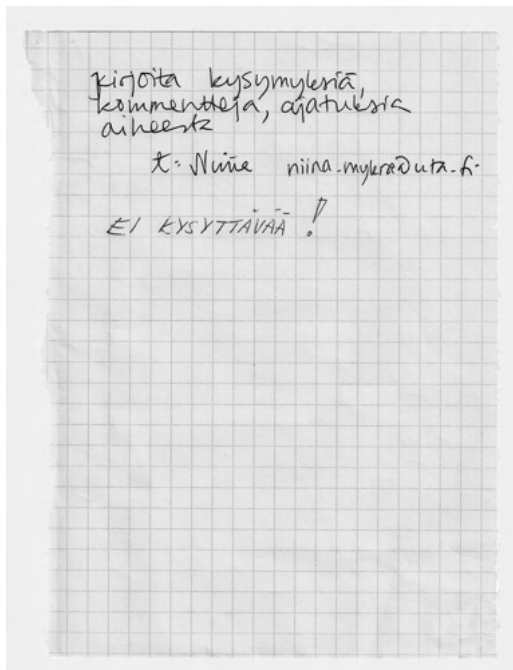 kirjoita kysymyksiä,
kommentteja, ajatuksia
aiheesta
t: Niina niina.mykra@uta.fi
EI KYSYTTÄVÄÄ!